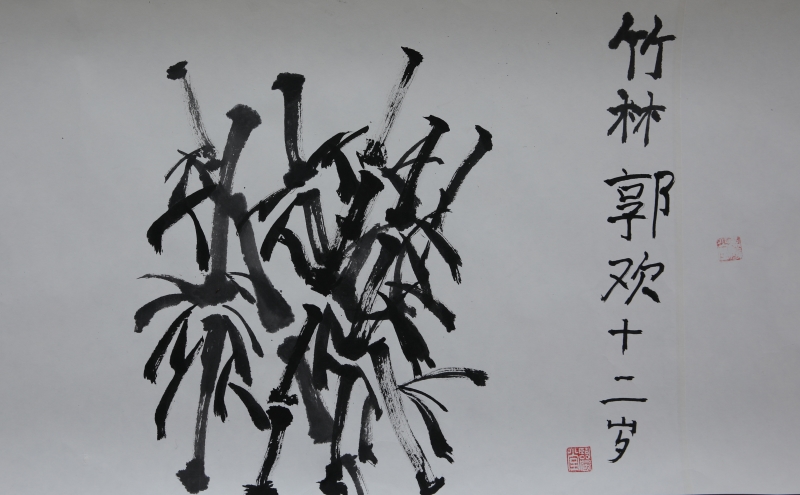 竹林郭欢十二岁